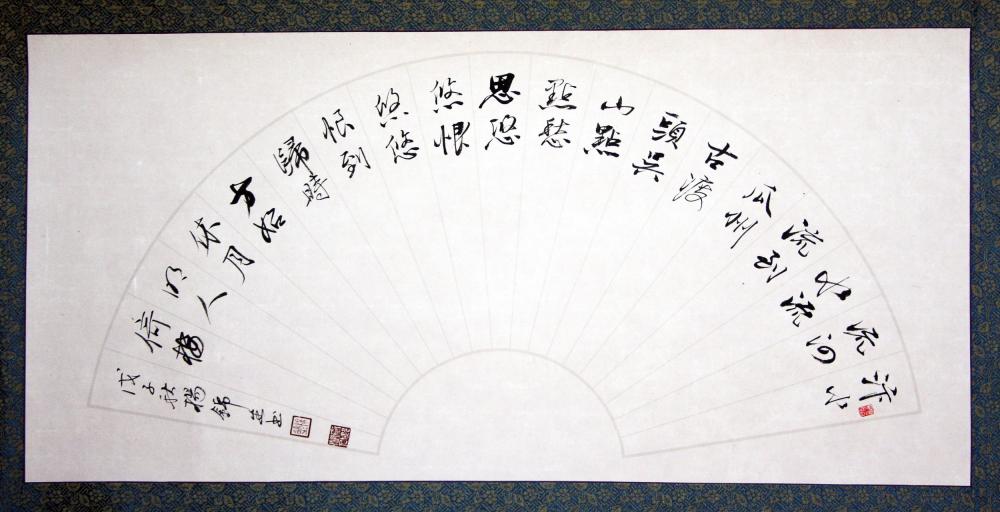 汴水
流泗
水流
流到
瓜州
古渡
頭吳
山點
點愁
思悠
悠恨
悠悠
恨到
歸時
方始
休月
明人
倚樓
戊子秋楊錦書